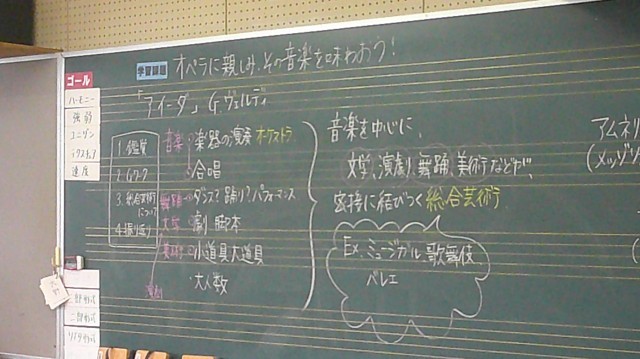 学習課題 オペラに親しみ、その音楽を味わおう!
「アイーダ」 G.ヴェルディ
ゴール
ハーモニー
強弱
ユニゾン
テクスチュア
速度
二部形式
三部形式
ソナタ形式
1. 鑑賞
2. Gワーク
3. 総合芸術
について
4. 振り返り
音楽 ・楽器の演奏 オーケストラ
・合唱
舞踊 ・ダンス?踊り?パフォーマンス
文学 ・劇 脚本
美術 ・小道具 大道具
・大人数
演劇
音楽を中心に、
文学、演劇、舞踊、美術などが、
密接に結びつく総合芸術
Ex. ミュージカル 歌舞伎
バレエ
アムネリ
(メッゾソ